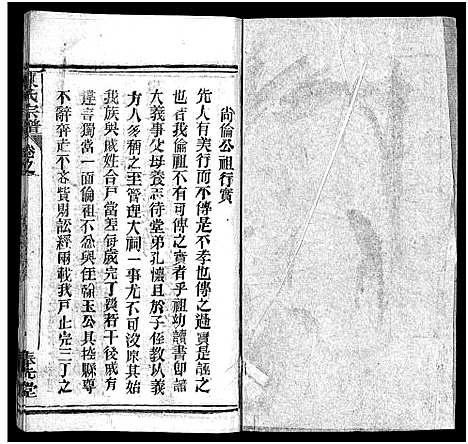 尙倫公祖行實
先人有美行而不傳是不孝也傳之過實是誣之
也若我倫祖不可傳之實者乎祖幼讀書卽諳
大義事父母養志待堂弟孔懷且於子侄教以義
方人多稱之至管理大祠一事尤不可沒原其始
我族與戚姓合戶當差每歲完丁費若干後戚有
違言獨當一面倫祖不忿與任翰玉公具控縣尊
不辭奔走不吝貲財訟經兩載我戶止完三丁之
氏宗譜
奉先堂